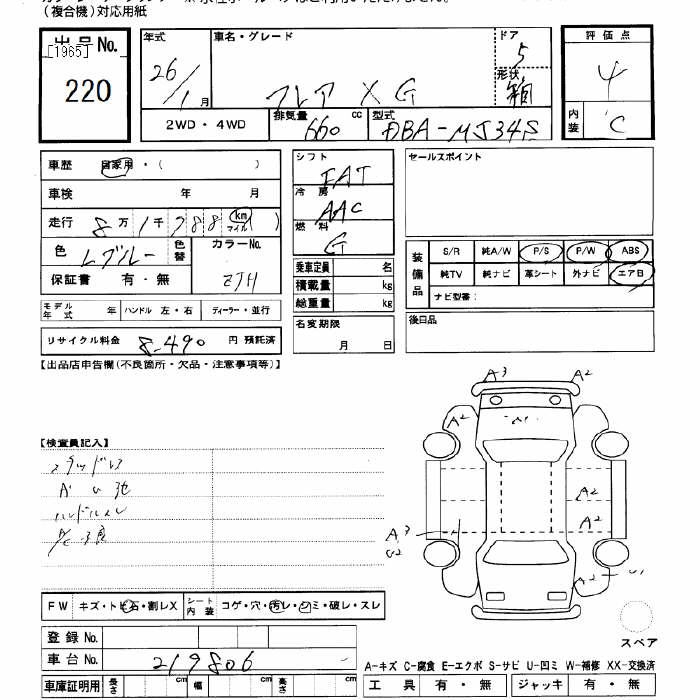 (複合機)対応用紙
出品No.
[1965]
220
年式
26/1月
車名・グレード
フレア XG
ドア
5
形状
箱
評価点
4
内装
C
2WD・4WD
排気量
660
cc
型式
DBA-MJ34S
車歴 自家用・( )
車検 年 月
走行 8万1千788 km マイル ( )
色 Lブルー
色替
カラーNo.
ZJH
保証書 有・無
モデル年式 年
ハンドル 左・右
ディーラー・並行
リサイクル料金 8,490 円 預託済
シフト
FAT
冷房
AAC
燃料
G
乗車定員 名
積載量 kg
総重量 kg
名変期限
月 日
セールスポイント
装備品
S/R 純A/W P/S P/W ABS
純TV 純ナビ 革シート 外ナビ エアB
ナビ型番:
後日品
【出品店申告欄(不良箇所・欠品・注意事項等)】
【検査員記入】
ハンドルスレ
FW キズ・トビ石・割レX
シート内装 コゲ・穴・汚レ・シミ・破レ・スレ
登録No.
車台No. 219806
車庫証明用 長さ cm 幅 cm 高さ cm
A3
A2
A2
A2
A1
A2
A2
A3
U2
A2
U1
スペア
A-キズ C-腐食 E-エクボ S-サビ U-凹ミ W-補修 XX-交換済
工具 有・無 ジャッキ 有・無